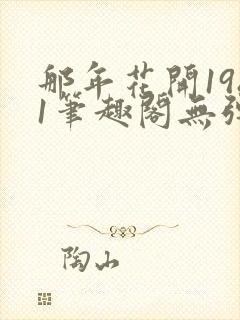 那年花開19
1筆趣閣無
陶山